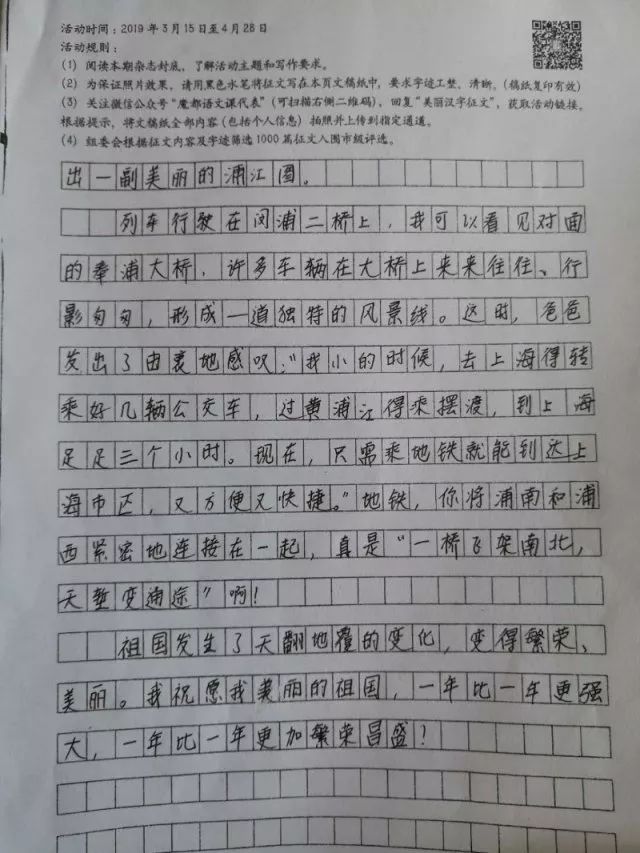 活动时间：2019年3月15日至4月28日
活动规则：
（1）阅读本期杂志封底，了解活动主题和写作要求。
（2）为保证照片效果，请用黑色水笔将征文写在本页文稿纸中，要求字迹工整、清晰。（稿纸复印有效）
（3）关注微信公众号“魔都语文课代表”（可扫描右侧二维码），回复“美丽汉字征文”，获取活动链接。
根据提示，将文稿纸全部内容（包括个人信息）拍照并上传到指定通道。
（4）组委会根据征文内容及字迹筛选1000篇征文入围市级评选。
出一副美丽的浦江图。
列车行驶在闵浦二桥上，我可以看见对面
的奉浦大桥，许多车辆在大桥上来来往往、行
影匆匆，形成一道独特的风景线。这时，爸爸
发出了由衷地感叹：“我小的时候，去上海得转
乘好几辆公交车，过黄浦江得乘摆渡，到上海
足足三个小时。现在，只需乘地铁就能到达上
海市区，又方便又快捷。”地铁，你将浦南和浦
西紧密地连接在一起，真是“一桥飞架南北，
天堑变通途”啊！
祖国发生了天翻地覆的变化，变得繁荣、
美丽。我祝愿我美丽的祖国，一年比一年更强
大，一年比一年更加繁荣昌盛！